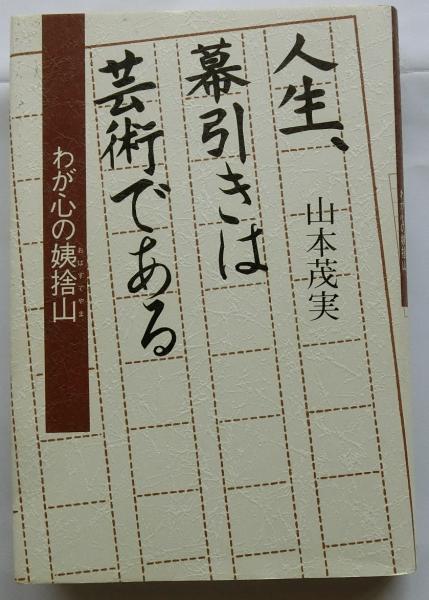 人生、
幕引きは
芸術である
山本茂実
わが心の姨捨山
おばすてやま